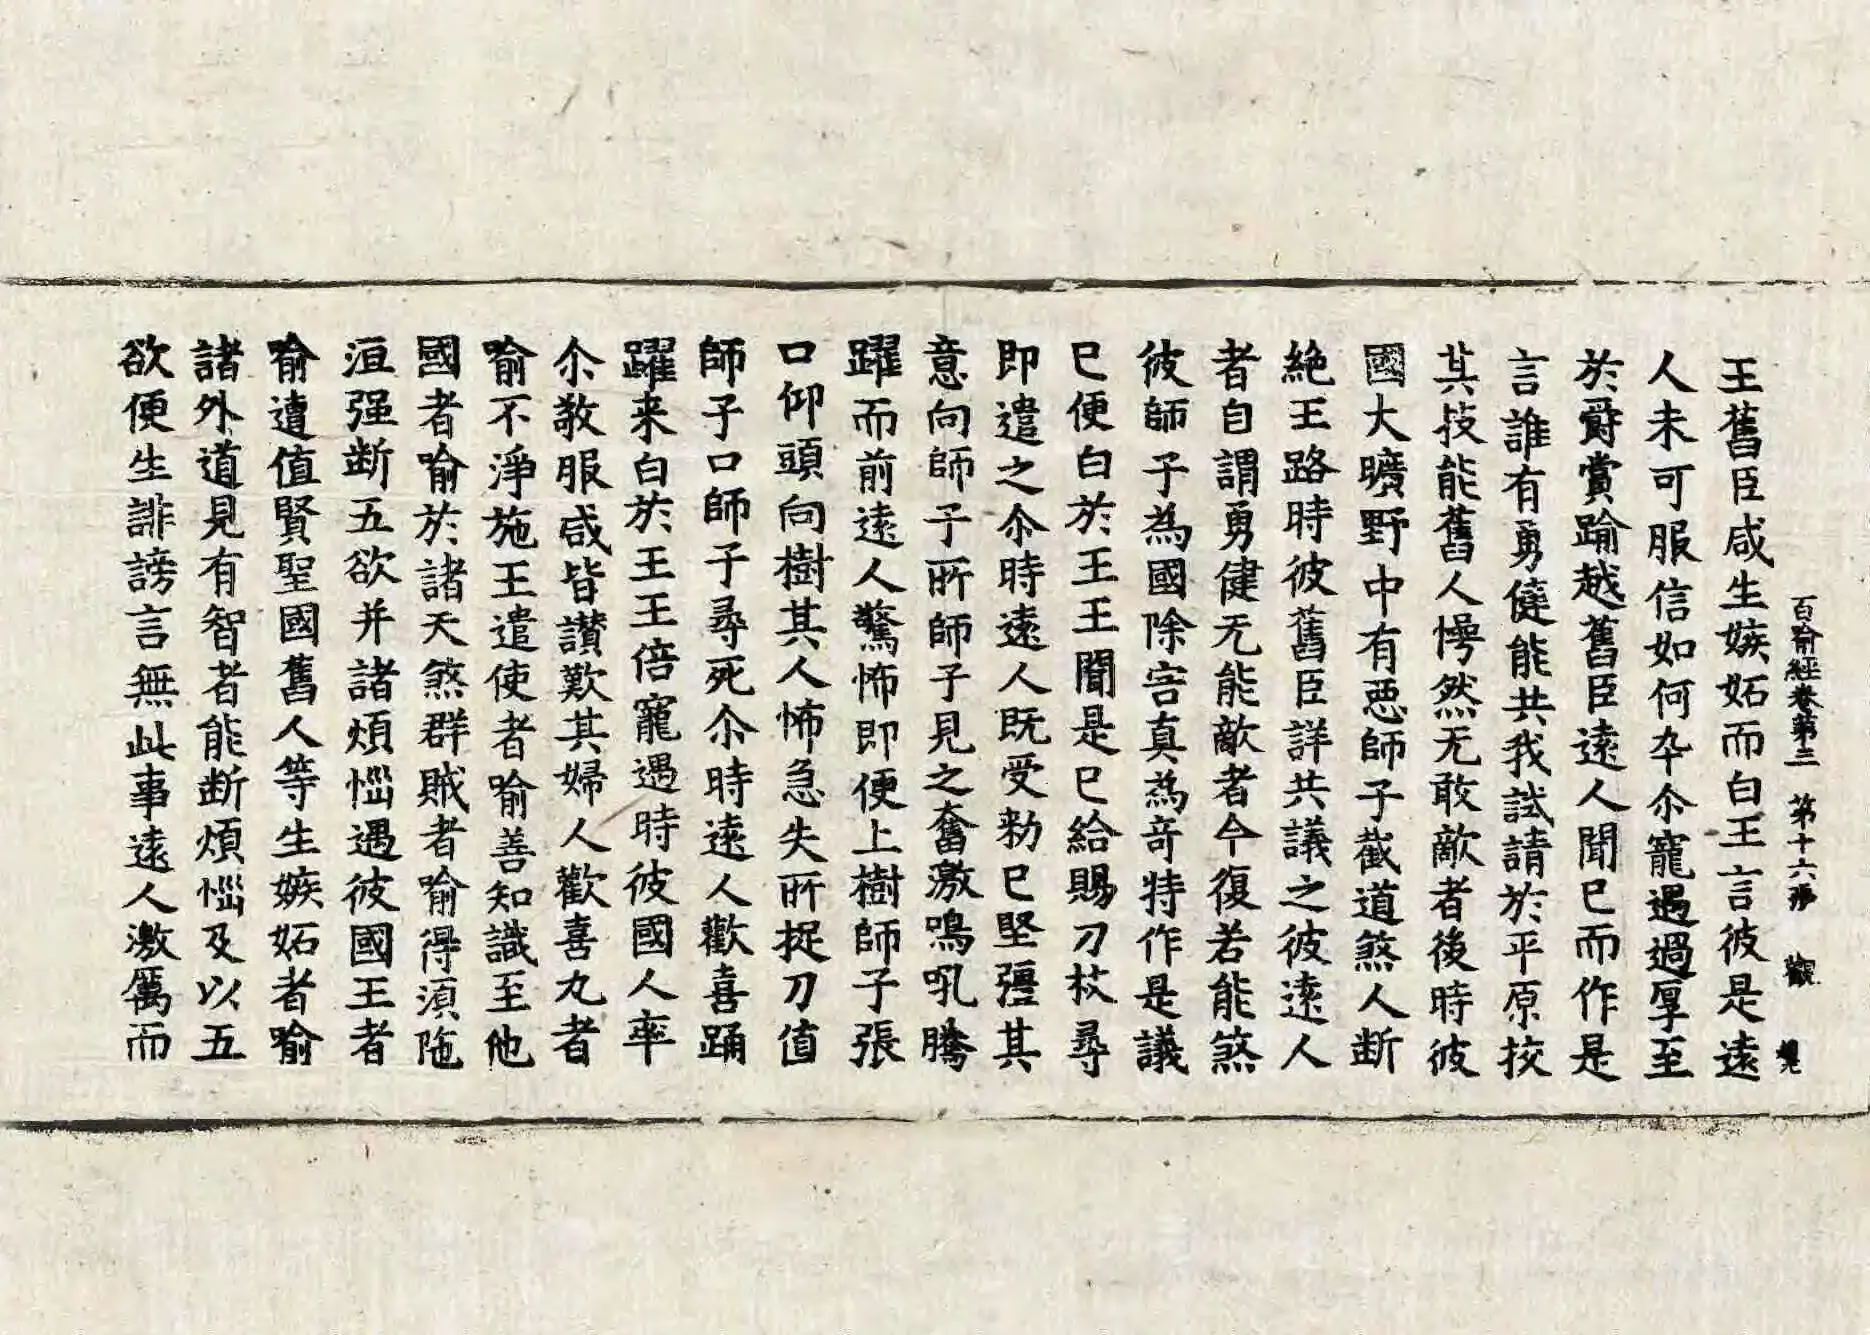 百喻經卷第三　第十六張　觀
王舊臣咸生嫉妬而白王言彼是遠
人未可服信如何卒尒寵遇過厚至
於爵賞踰越舊臣遠人聞已而作是
言誰有勇健能共我試請於平原挍
其技能舊人愕然无敢敵者後時彼
國大曠野中有惡師子截道煞人断
絶王路時彼舊臣詳共議之彼遠人
者自謂勇健无能敵者今復若能煞
彼師子為國除害真為竒特作是議
已便白於王王聞是已給賜刀杖尋
即遣之尒時遠人既受勑已堅彊其
意向師子所師子見之奮激鳴吼騰
躍而前遠人驚怖即便上樹師子張
口仰頭向樹其人怖急失所捉刀值
師子口師子尋死尒時遠人歡喜踊
躍来白於王王倍寵遇時彼國人率
尒敎服咸皆讃歎其婦人歡喜丸者
喻不淨施王遣使者喻善知識至他
國者喻於諸天煞群賊者喻得湏陁
洹强断五欲并諸煩惱遇彼國王者
喻遭值賢聖國舊人等生嫉妬者喻
諸外道見有智者能断煩惱及以五
欲便生誹謗言無此事遠人激厲而